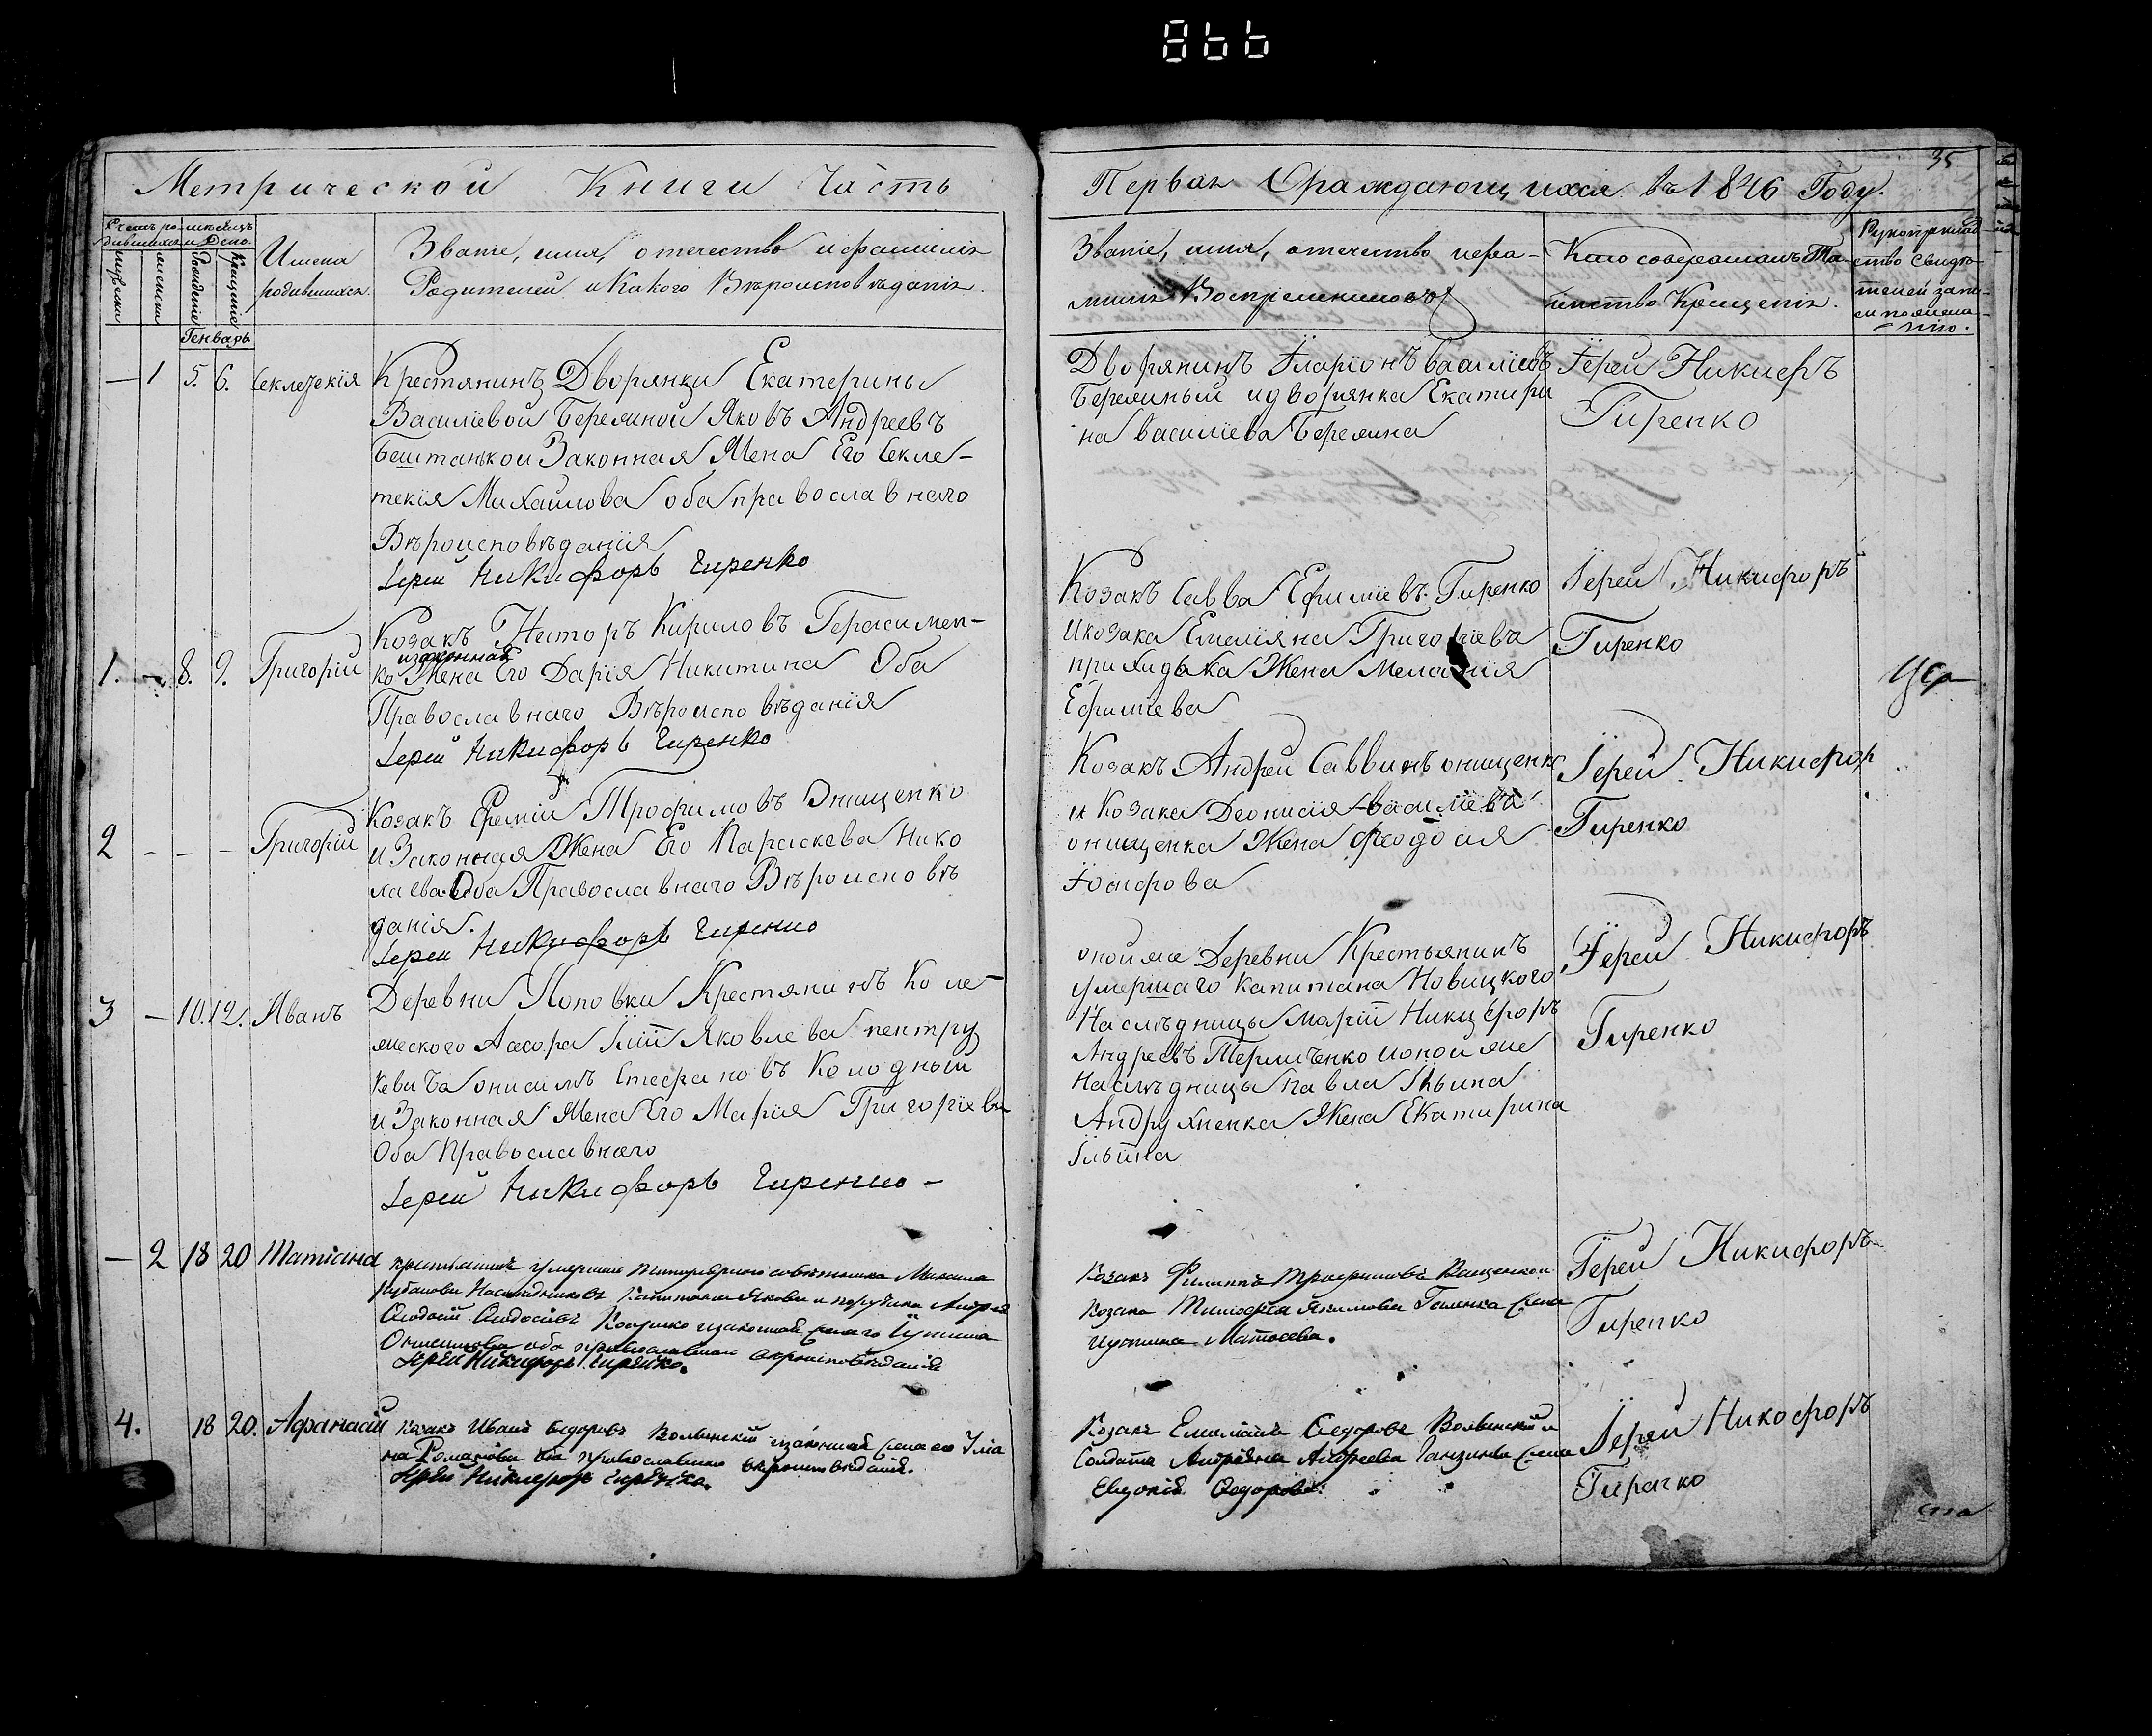 866
35
Метрической Книги Часть
Первая О раждающихся въ 1846 Году.
Имена
родившихся
Званіе, имя, отечество и фамилія
Родителей и Какого Вѣроисповѣданія.
Званіе, имя, отечество и фа-
милія Воспреемниковъ
Кто совершалъ Та-
инство Крещенія.
Рукоприклад
ство Свидѣ-
телей запи-
си по жела-
нію.
Генварь
— 1 5. 6. Секлетекія
Крестянинъ Дворянки Екатерины
Василіевой Бережиной Яковъ Андреевъ
Бештанькои Законная Жена Его Секле-
текія Михайлова оба православнаго
Вѣроисповѣданія
Іерей Никифоръ Гиренко
Дворянинъ Іларіонъ василіевъ
Бережиный и дворянка Екатири
на василіева Бережина
Іерей Никифръ
Гиренко
1. — 8. 9. Григорій
Козакъ Несторъ Кириловъ Герасимен-
изаконная
ко Жена Его Дарія Никитина Оба
Православнаго Вѣроисповѣданія
Іерей Никифоръ Гиренко
Козакъ Савва Ефиміевъ Гиренко
И козака Емеліяна Григоріева
приходька Жена Меланія
Ефиміева
Іерей Никифоръ
Гиренко
2 — — — Григорій
Козакъ Еремій Трофимовъ Онищенко
и Законная Жена Его Параскева Нико
лаева Оба Православнаго Вѣроисповѣ
данія.
Іерей Никифоръ Гиренко
Козакъ Андрей Саввинъ онищенк
и Козака Деонисія василіева
онищенка Жена Феодосія
Іосифова
Іерей Никифор
Гиренко
3 — 10. 12. Иванъ
Деревни Поповки Крестянинъ Коле-
жского Асесора Іліи Яковлева пентру
кевича онисимъ Стефановъ Колодный
и Законная Жена Его Марія Григоріева
Оба Православнаго
Іерей Никифоръ Гиренко —
оной же Деревни Крестьянинъ
умершаго капитана Новицкого
Наслѣдницы Маріи Никифоръ
Андреевъ Термиченко и оной же
наслѣдницы павла Ільина
Андрухненка Жена Екатирина
Ільина
Іерей Никифоръ
Гиренко
— 2 18 20 Татіана
Наслѣдниковъ Капитана Якова и порутчика Андрея
Іерей Никифоръ Гиренко.
Козакъ Филиппъ Трофимовъ Ващенко и
Козака Тимофея Якимова Галенка жена
Іустина Матвеева.
Іерей Никифоръ
Гиренко
4. 18 20. Афанасій
Козакъ Иванъ Федоровъ Волынскій изаконная жена его Улія
на Романова оба православнаго вѣроисповѣданія.
Іерей Никифоръ Гиренко.
Козакъ Емиліанъ Федоровъ Волынскій и
Солдата Андріяна Андреева Ганзина жена
Евдокія Федорова.
Іерей Никофоръ
Гиренко